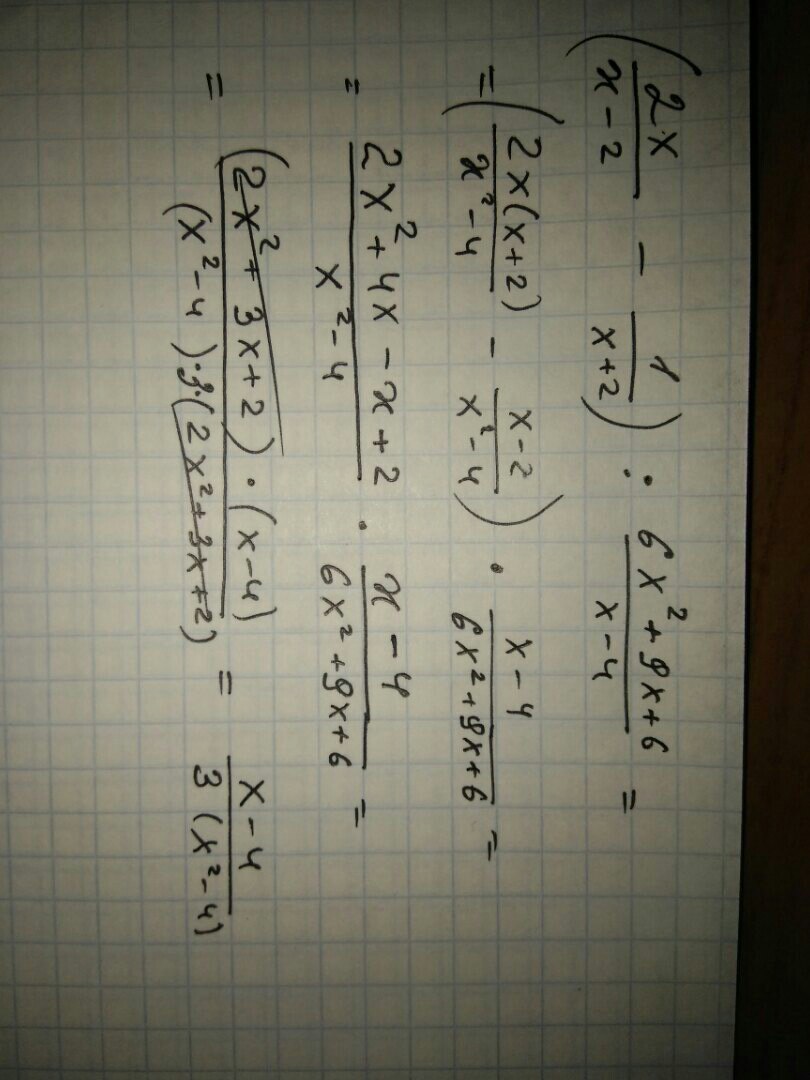 (2x/(x-2) - 1/(x+2)) : (6x²+9x+6)/(x-4) =
= (2x(x+2)/(x²-4) - (x-2)/(x²-4)) · (x-4)/(6x²+9x+6) =
= (2x²+4x-x+2)/(x²-4) · (x-4)/(6x²+9x+6) =
= ((2x²+3x+2)·(x-4))/((x²-4)·3·(2x²+3x+2)) = (x-4)/(3(x²-4))